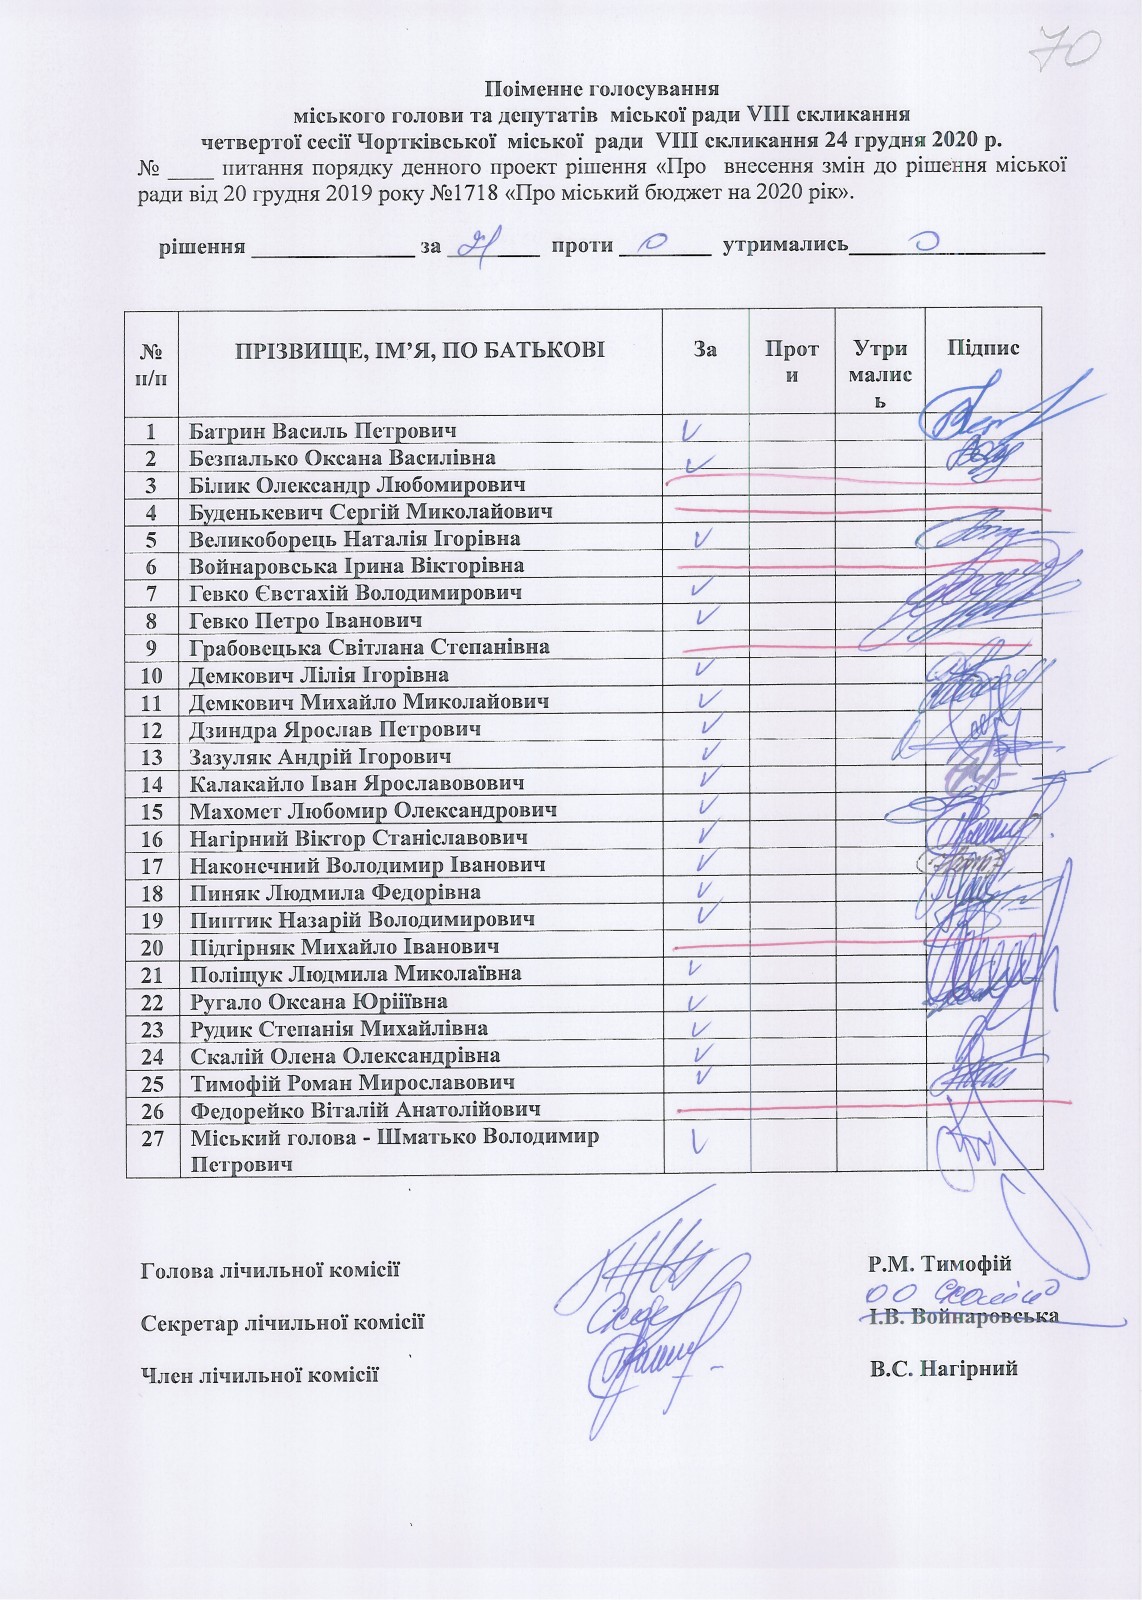 70
Поіменне голосування
міського голови та депутатів міської ради VIII скликання
четвертої сесії Чортківської міської ради VIII скликання 24 грудня 2020 р.
№ ____ питання порядку денного проект рішення «Про внесення змін до рішення міської
ради від 20 грудня 2019 року №1718 «Про міський бюджет на 2020 рік».
рішення ______________ за 21 проти 0 утримались 0
№ п/п ПРІЗВИЩЕ, ІМ’Я, ПО БАТЬКОВІ За Проти Утрималисьь Підпис
1 Батрин Василь Петрович
2 Безпалько Оксана Василівна
3 Білик Олександр Любомирович
4 Буденькевич Сергій Миколайович
5 Великоборець Наталія Ігорівна
6 Войнаровська Ірина Вікторівна
7 Гевко Євстахій Володимирович
8 Гевко Петро Іванович
9 Грабовецька Світлана Степанівна
10 Демкович Лілія Ігорівна
11 Демкович Михайло Миколайович
12 Дзиндра Ярослав Петрович
13 Зазуляк Андрій Ігорович
14 Калакайло Іван Ярославовович
15 Махомет Любомир Олександрович
16 Нагірний Віктор Станіславович
17 Наконечний Володимир Іванович
18 Пиняк Людмила Федорівна
19 Пиптик Назарій Володимирович
20 Підгірняк Михайло Іванович
21 Поліщук Людмила Миколаївна
22 Ругало Оксана Юріїївна
23 Рудик Степанія Михайлівна
24 Скалій Олена Олександрівна
25 Тимофій Роман Мирославович
26 Федорейко Віталій Анатолійович
27 Міський голова - Шматько Володимир
Петрович
Голова лічильної комісії Р.М. Тимофій
Секретар лічильної комісії І.В. Войнаровська
Член лічильної комісії В.С. Нагірний